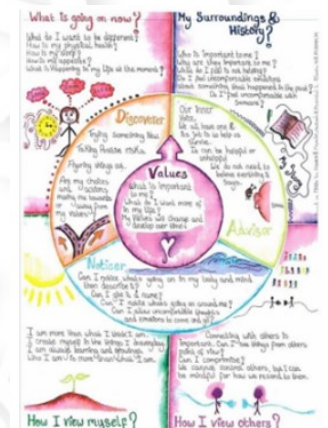 What is going on now?
What do I want to be different?
How is my physical health?
How is my sleep?
How is my appetite?
What is happening in my life at the moment?
My Surroundings &
History?
Who is Important to me?
Why are they Important to me?
Discoverer
Trying Something New
Taking Risks
Figuring things out
Are my choices
and actions
moving me towards
my values?
Our Inner
Voice,
We all have one &
it's job is to help us
survive.
It can be helpful or
unhelpful
We do not need to
believe everything it
says.
Advisor
Values
What is important
to me?
What do I want more of
in my life?
My values will change and
develop over time!
Noticer
Can I notice what's going on in my body and mind
then describe it?
Can I give it a name?
Can I notice what's going on around me?
Can I allow uncomfortable
and emotions to come and go?
I am more than what I think I am.
I create myself in the things I
I am always learning and growing.
Who I am is more than what I
Connecting with others is
Important. Can I see things from others
point of view?
Can I compromise?
We cannot control others, but I can
be mindful for how we respond to them.
How I view myself?
How I view others?